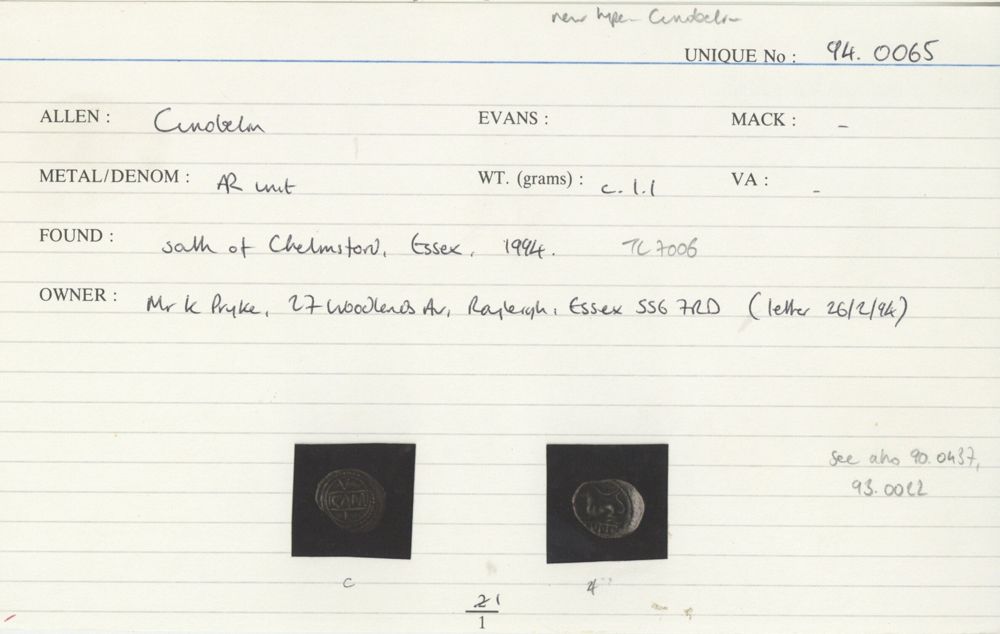 new type - Cunobelin
UNIQUE No : 94. 0065
ALLEN : Cunobelin EVANS : MACK : -
METAL/DENOM : AR unit WT. (grams) : c. 1.1 VA : -
FOUND : south of Chelmsford, Essex, 1994. TL 7006
OWNER : Mr K Pryke, 27 Woodlands Av, Rayleigh, Essex SS6 7RD (letter 26/2/94)
see also 90.0437,
93.0022
CAM
C
21
1